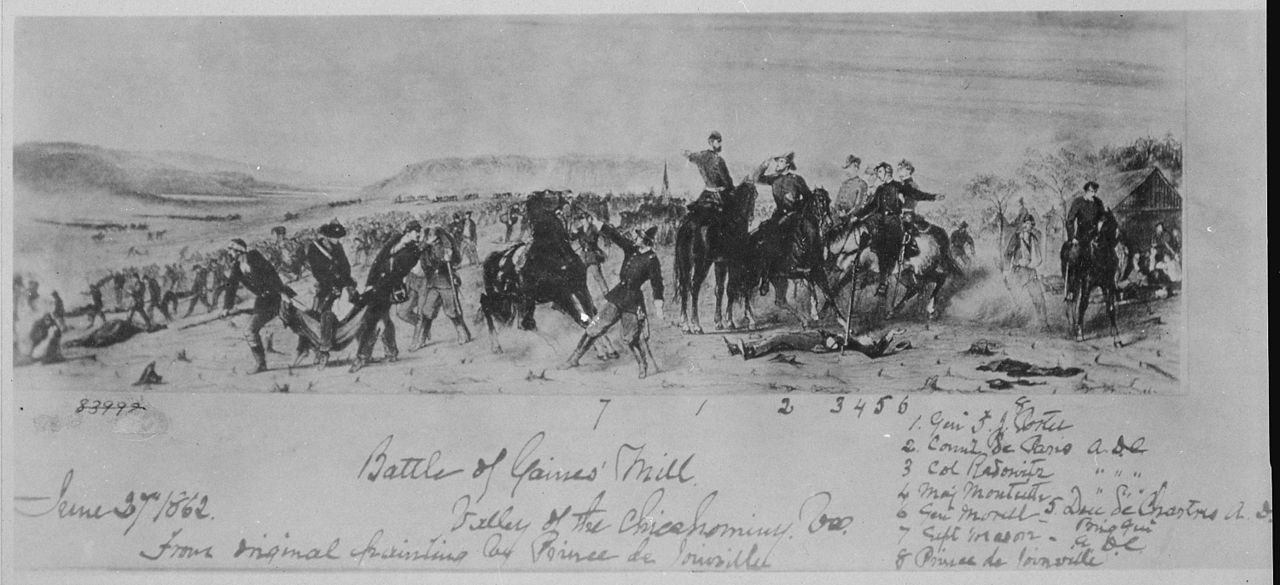 83992
7 1 2 3 4 5 6 8
1. Gen F. J. Porter
2. Comte De Paris A. D. C
3 Col Radowitz " " "
4 Maj Monteith " " "
5. Duc De Chartres A. D.
6 Gen Morell - Brig Gen
7 Capt Mason - A D C
8 Prince de Joinville
Battle of Gaines' Mill.
June 27" 1862.
Valley of the Chicahominy. Va.
From original painting by Prince de Joinville